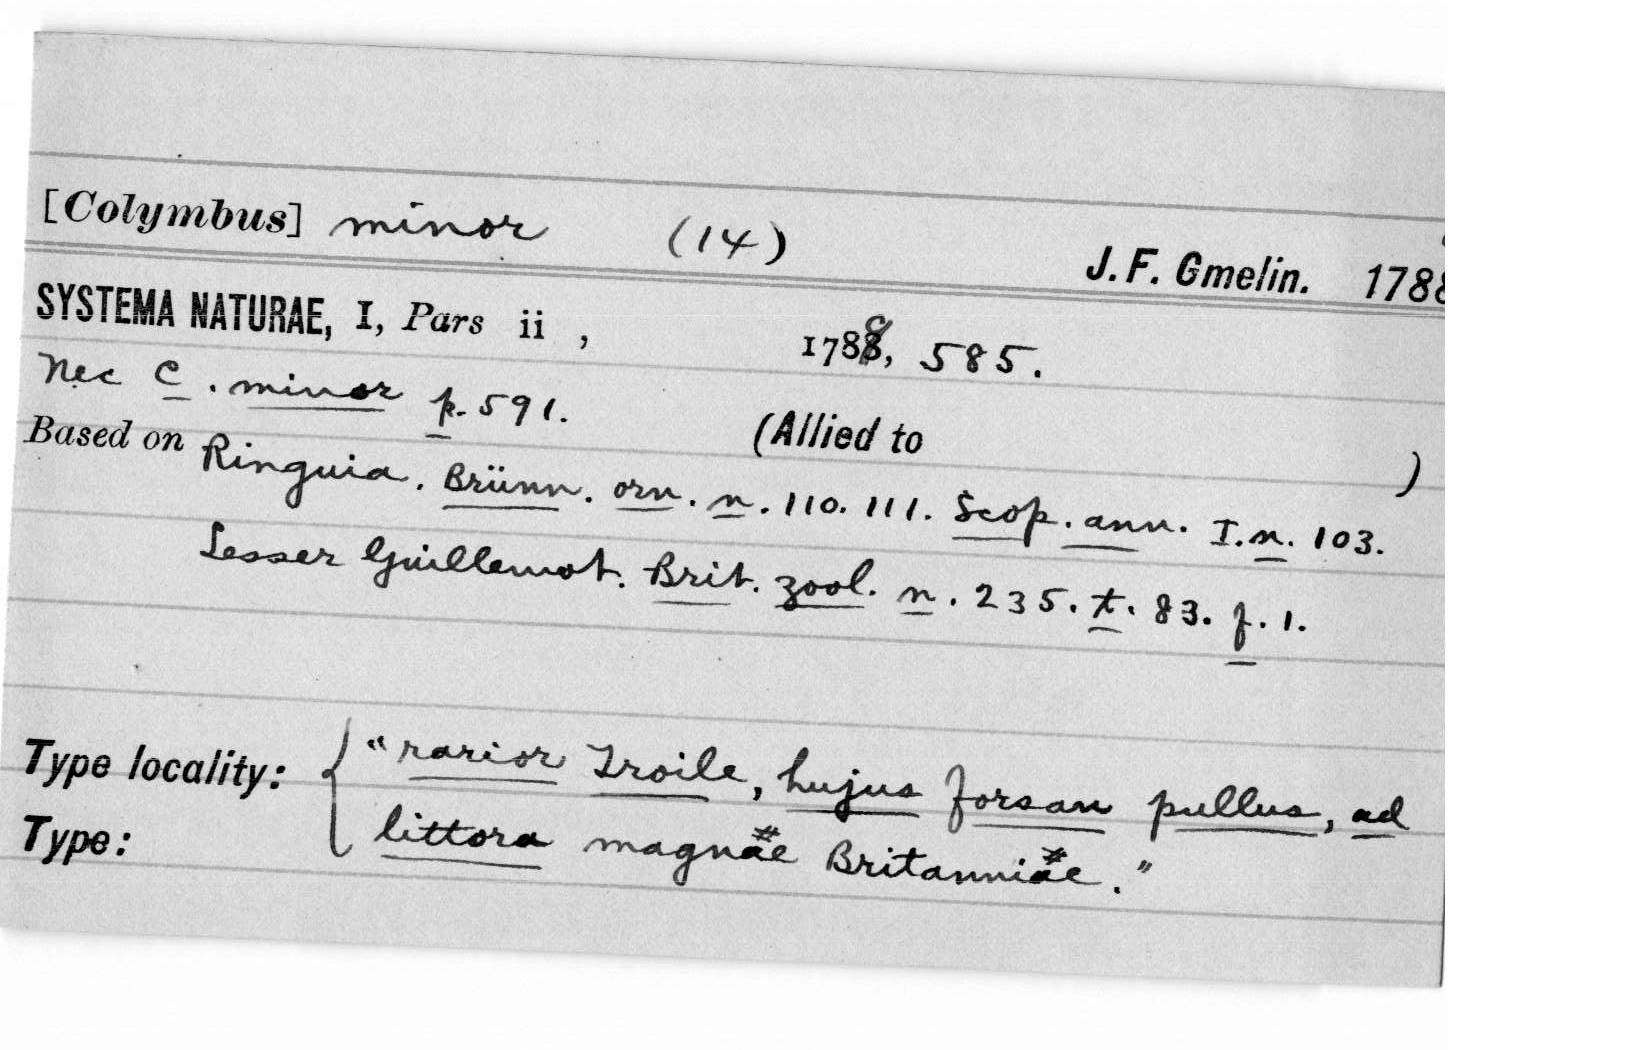 [Colymbus] minor (14)
J. F. Gmelin. 1788
SYSTEMA NATURAE, I, Pars ii , 1788, 585.
Nec C. minor p. 591.
(Allied to )
Based on Ringuia. Brünn. orn. n. 110. 111. Scop. ann. I. n. 103.
Lesser Guillemot. Brit. zool. n. 235. t. 83. f. 1.
Type locality: { "rarior Troile, hujus forsan pullus, ad
Type: littora magnae Britanniae."